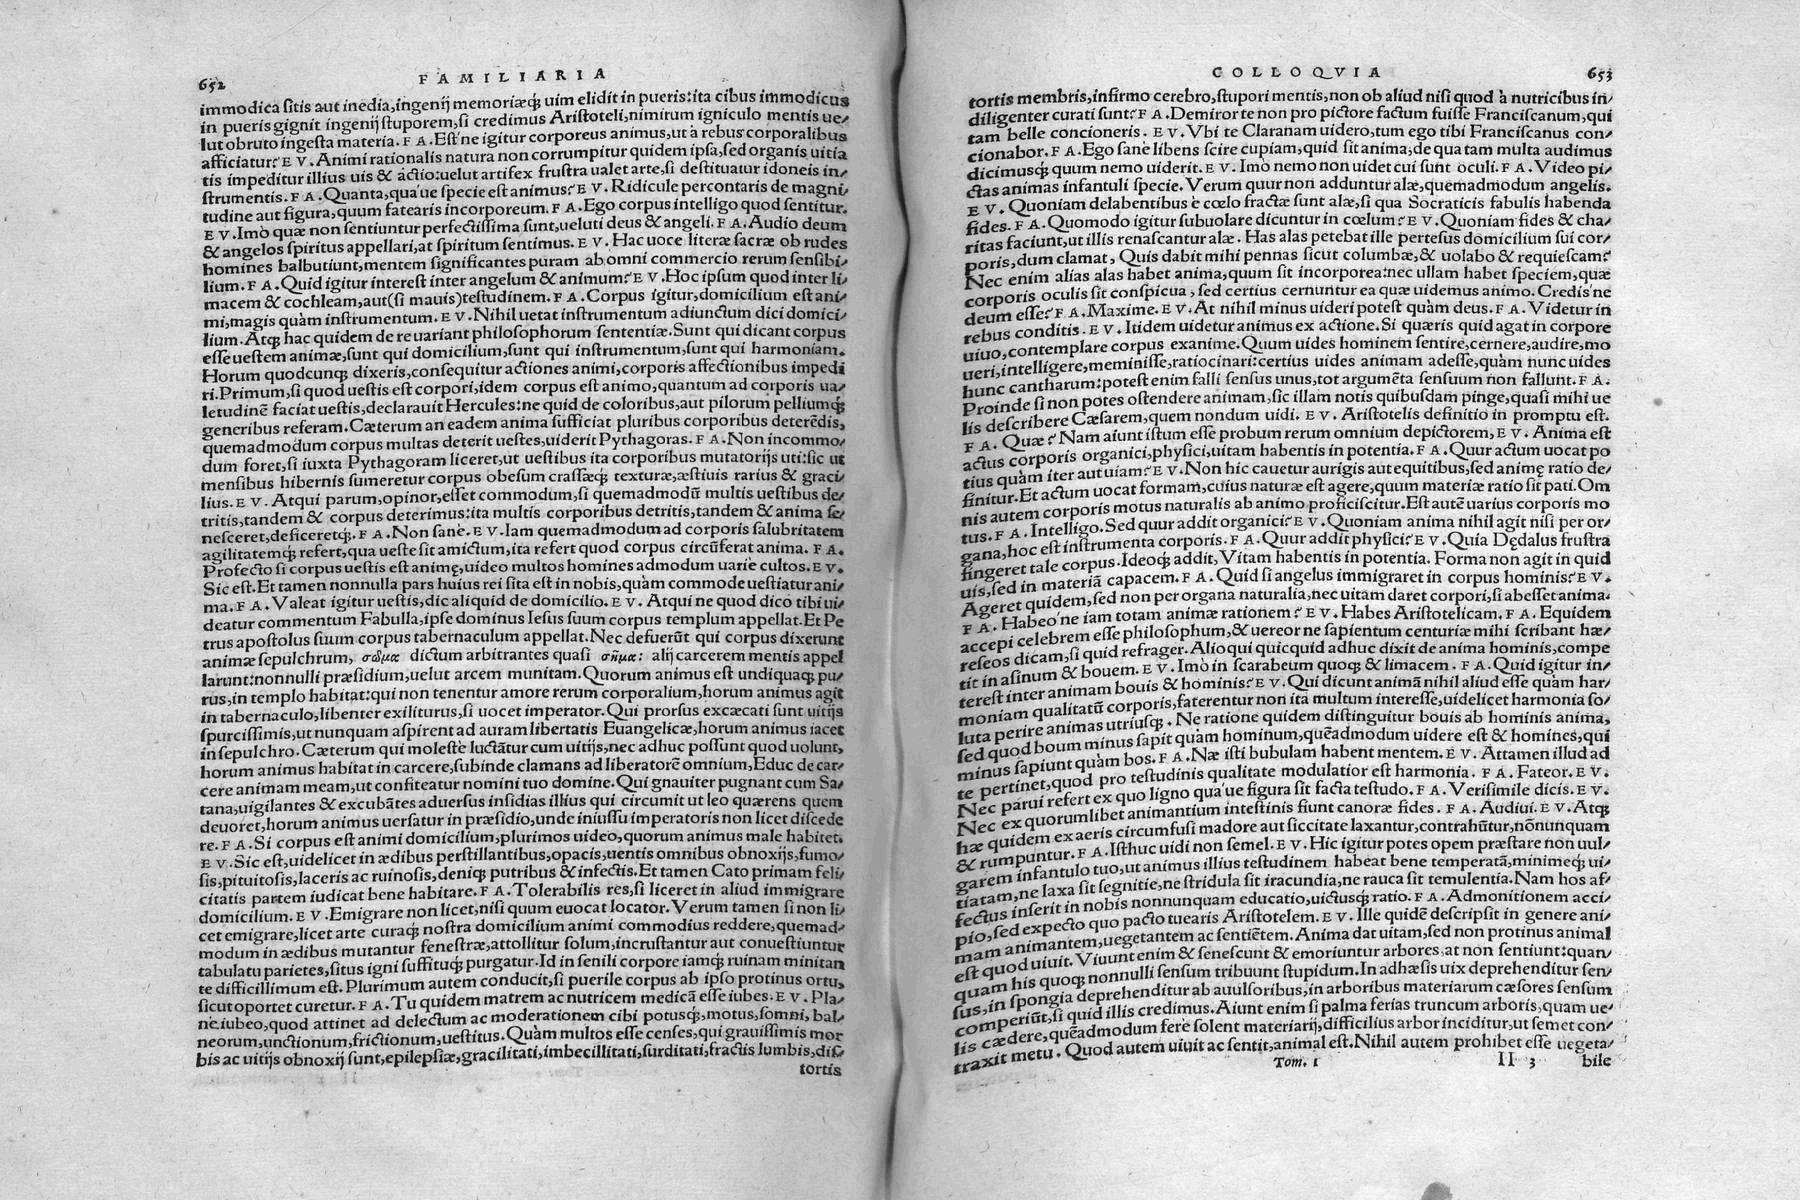 652 FAMILIARIA
immodica sitis aut inedia, ingenij memoriæq́ꝫ uim elidit in pueris: ita cibus immodicus
in pueris gignit ingenij stuporem, si credimus Aristoteli, nimirum igniculo mentis ue-
lut obruto ingesta materia. FA. Est'ne igitur corporeus animus, ut à rebus corporalibus
afficiatur? EV. Animi rationalis natura non corrumpitur quidem ipsa, sed organis uitia
tis impeditur illius uis & actio: uelut artifex frustra ualet arte, si destituatur idoneis in-
strumentis. FA. Quanta, qua'ue specie est animus? EV. Ridicule percontaris de magni
tudine aut figura, quum fatearis incorporeum. FA. Ego corpus intelligo quod sentitur.
EV. Imò quæ non sentiuntur perfectissima sunt, ueluti deus & angeli. FA. Audio deum
& angelos spiritus appellari, at spiritum sentimus. EV. Hac uoce literæ sacræ ob rudes
homines balbutiunt, mentem significantes puram ab omni commercio rerum sensibi-
lium. FA. Quid igitur interest inter angelum & animum? EV. Hoc ipsum quod inter li
macem & cochleam, aut (si mauis) testudinem. FA. Corpus igitur, domicilium est ani-
mi, magis quàm instrumentum. EV. Nihil uetat instrumentum adiunctum dici domici-
lium. Atqꝫ hac quidem de re uariant philosophorum sententiæ. Sunt qui dicant corpus
esse uestem animæ, sunt qui domicilium, sunt qui instrumentum, sunt qui harmoniam.
Horum quodcunqꝫ dixeris, consequitur actiones animi, corporis affectionibus impedi
ri. Primum, si quod uestis est corpori, idem corpus est animo, quantum ad corporis ua-
letudinē faciat uestis, declarauit Hercules: ne quid de coloribus, aut pilorum pelliumq́ꝫ
generibus referam. Cæterum an eadem anima sufficiat pluribus corporibus deterēdis,
quemadmodum corpus multas deterit uestes, uiderit Pythagoras. FA. Non incommo-
dum foret, si iuxta Pythagoram liceret, ut uestibus ita corporibus mutatorijs uti: sic ut
mensibus hibernis sumeretur corpus obesum crassæq́ꝫ texturæ, æstiuis rarius & graci-
lius. EV. Atqui parum, opinor, esset commodum, si quemadmodū multis uestibus de-
tritis, tandem & corpus deterimus: ita multis corporibus detritis, tandem & anima se-
nesceret, deficeretq́ꝫ. FA. Non sanè. EV. Iam quemadmodum ad corporis salubritatem
agilitatemq́ꝫ refert, qua ueste sit amictum, ita refert quod corpus circūferat anima. FA.
Profecto si corpus uestis est animę, uideo multos homines admodum uarie cultos. EV.
Sic est. Et tamen nonnulla pars huius rei sita est in nobis, quàm commode uestiatur ani-
ma. FA. Valeat igitur uestis, dic aliquid de domicilio. EV. Atqui ne quod dico tibi ui-
deatur commentum Fabulla, ipse dominus Iesus suum corpus templum appellat. Et Pe
trus apostolus suum corpus tabernaculum appellat. Nec defuerūt qui corpus dixerunt
animæ sepulchrum, σῶμα dictum arbitrantes quasi σῆμα: alij carcerem mentis appel
larunt: nonnulli præsidium, uelut arcem munitam. Quorum animus est undiquaqꝫ pu-
rus, in templo habitat: qui non tenentur amore rerum corporalium, horum animus agit
in tabernaculo, libenter exiliturus, si uocet imperator. Qui prorsus excæcati sunt uitijs
spurcissimis, ut nunquam aspirent ad auram libertatis Euangelicæ, horum animus iacet
in sepulchro. Cæterum qui molestè luctātur cum uitijs, nec adhuc possunt quod uolunt,
horum animus habitat in carcere, subinde clamans ad liberatorē omnium, Educ de car-
cere animam meam, ut confiteatur nomini tuo domine. Qui gnauiter pugnant cum Sa-
tana, uigilantes & excubātes aduersus insidias illius qui circumit ut leo quærens quem
deuoret, horum animus uersatur in præsidio, unde iniussu imperatoris non licet discede
re. FA. Si corpus est animi domicilium, plurimos uideo, quorum animus male habitet.
EV. Sic est, uidelicet in ædibus perstillantibus, opacis, uentis omnibus obnoxijs, fumo-
sis, pituitosis, laceris ac ruinosis, deniqꝫ putribus & infectis. Et tamen Cato primam feli-
citatis partem iudicat bene habitare. FA. Tolerabilis res, si liceret in aliud immigrare
domicilium. EV. Emigrare non licet, nisi quum euocat locator. Verum tamen si non li-
cet emigrare, licet arte curaq́ꝫ nostra domicilium animi commodius reddere, quemad-
modum in ædibus mutantur fenestræ, attollitur solum, incrustantur aut conuestiuntur
tabulatu parietes, situs igni suffituq́ꝫ purgatur. Id in senili corpore iamq́ꝫ ruinam minitan
te difficillimum est. Plurimum autem conducit, si puerile corpus ab ipso protinus ortu,
sicut oportet curetur. FA. Tu quidem matrem ac nutricem medicā esse iubes. EV. Pla-
nè iubeo, quod attinet ad delectum ac moderationem cibi potusq́ꝫ, motus, somni, bal-
neorum, unctionum, frictionum, uestitus. Quàm multos esse censes, qui grauissimis mor
bis ac uitijs obnoxij sunt, epilepsiæ, gracilitati, imbecillitati, surditati, fractis lumbis, dis-
tortis
COLLOQVIA 653
tortis membris, infirmo cerebro, stupori mentis, non ob aliud nisi quod à nutricibus in-
diligenter curati sunt? FA. Demiror te non pro pictore factum fuisse Franciscanum, qui
tam belle concioneris. EV. Vbi te Claranam uidero, tum ego tibi Franciscanus con-
cionabor. FA. Ego sanè libens scire cupiam, quid sit anima, de qua tam multa audimus
dicimusq́ꝫ quum nemo uiderit. EV. Imò nemo non uidet cui sunt oculi. FA. Video pi-
ctas animas infantuli specie. Verum quur non adduntur alæ, quemadmodum angelis.
EV. Quoniam delabentibus è cœlo fractæ sunt alæ, si qua Socraticis fabulis habenda
fides. FA. Quomodo igitur subuolare dicuntur in cœlum? EV. Quoniam fides & cha-
ritas faciunt, ut illis renascantur alæ. Has alas petebat ille pertesus domicilium sui cor-
poris, dum clamat, Quis dabit mihi pennas sicut columbæ, & uolabo & requiescam?
Nec enim alias alas habet anima, quum sit incorporea: nec ullam habet speciem, quæ
corporis oculis sit conspicua, sed certius cernuntur ea quæ uidemus animo. Credis'ne
deum esse? FA. Maxime. EV. At nihil minus uideri potest quàm deus. FA. Videtur in
rebus conditis. EV. Itidem uidetur animus ex actione. Si quæris quid agat in corpore
uiuo, contemplare corpus exanime. Quum uides hominem sentire, cernere, audire, mo
ueri, intelligere, meminisse, ratiocinari: certius uides animam adesse, quàm nunc uides
hunc cantharum: potest enim falli sensus unus, tot argumēta sensuum non fallunt. FA.
Proinde si non potes ostendere animam, sic illam notis quibusdam pinge, quasi mihi ue
lis describere Cæsarem, quem nondum uidi. EV. Aristotelis definitio in promptu est.
FA. Quæ? Nam aiunt istum esse probum rerum omnium depictorem, EV. Anima est
actus corporis organici, physici, uitam habentis in potentia. FA. Quur actum uocat po
tius quàm iter aut uiam? EV. Non hic cauetur aurigis aut equitibus, sed animę ratio de-
finitur. Et actum uocat formam, cuius naturæ est agere, quum materiæ ratio sit pati. Om
nis autem corporis motus naturalis ab animo proficiscitur. Est autē uarius corporis mo
tus. FA. Intelligo. Sed quur addit organici? EV. Quoniam anima nihil agit nisi per or-
gana, hoc est instrumenta corporis. FA. Quur addit physici? EV. Quia Dędalus frustra
fingeret tale corpus. Ideoqꝫ addit, Vitam habentis in potentia. Forma non agit in quid
uis, sed in materiā capacem. FA. Quid si angelus immigraret in corpus hominis? EV.
Ageret quidem, sed non per organa naturalia, nec uitam daret corpori, si abesset anima.
FA. Habeo'ne iam totam animæ rationem? EV. Habes Aristotelicam. FA. Equidem
accepi celebrem esse philosophum, & uereor ne sapientum centuriæ mihi scribant hæ-
reseos dicam, si quid refrager. Alioqui quicquid adhuc dixit de anima hominis, compe
tit in asinum & bouem. EV. Imò in scarabeum quoqꝫ & limacem. FA. Quid igitur in-
terest inter animam bouis & hominis? EV. Qui dicunt animā nihil aliud esse quàm har-
moniam qualitatū corporis, faterentur non ita multum interesse, uidelicet harmonia so-
luta perire animas utriusqꝫ. Ne ratione quidem distinguitur bouis ab hominis anima,
sed quod boum minus sapit quàm hominum, quēadmodum uidere est & homines, qui
minus sapiunt quàm bos. FA. Næ isti bubulam habent mentem. EV. Attamen illud ad
te pertinet, quod pro testudinis qualitate modulatior est harmonia. FA. Fateor. EV.
Nec parui refert ex quo ligno qua'ue figura sit facta testudo. FA. Verisimile dicis. EV.
Nec ex quorumlibet animantium intestinis fiunt canoræ fides. FA. Audiui. EV. Atqꝫ
hæ quidem ex aeris circumfusi madore aut siccitate laxantur, contrahūtur, nōnunquam
& rumpuntur. FA. Isthuc uidi non semel. EV. Hic igitur potes opem præstare non uul-
garem infantulo tuo, ut animus illius testudinem habeat bene temperatā, minimeq́ꝫ ui-
tiatam, ne laxa sit segnitie, ne stridula sit iracundia, ne rauca sit temulentia. Nam hos af-
fectus inserit in nobis nonnunquam educatio, uictusq́ꝫ ratio. FA. Admonitionem acci-
pio, sed expecto quo pacto tuearis Aristotelem. EV. Ille quidē descripsit in genere ani-
mam animantem, uegetantem ac sentiētem. Anima dat uitam, sed non protinus animal
est quod uiuit. Viuunt enim & senescunt & emoriuntur arbores, at non sentiunt: quan-
quam his quoqꝫ nonnulli sensum tribuunt stupidum. In adhæsis uix deprehenditur sen-
sus, in spongia deprehenditur ab auulsoribus, in arboribus materiarum cæsores sensum
comperiūt, si quid illis credimus. Aiunt enim si palma ferias truncum arboris, quam ue-
lis cædere, quēadmodum ferè solent materiarij, difficilius arbor inciditur, ut semet con-
traxit metu. Quod autem uiuit ac sentit, animal est. Nihil autem prohibet esse uegeta-
Tom. 1 II 3 bile